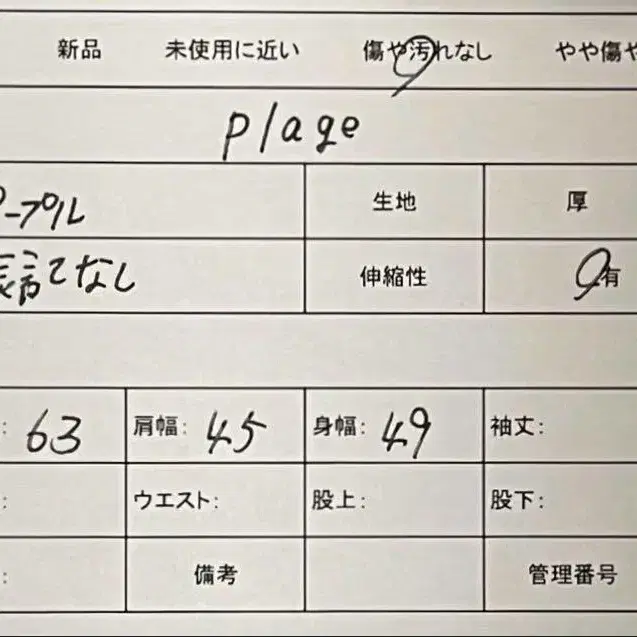 新品 未使用に近い 傷や汚れなし やや傷や
plage
パープル 生地 厚
表記なし 伸縮性 有
: 63 肩幅: 45 身幅: 49 袖丈:
: ウエスト: 股上: 股下:
: 備考 管理番号